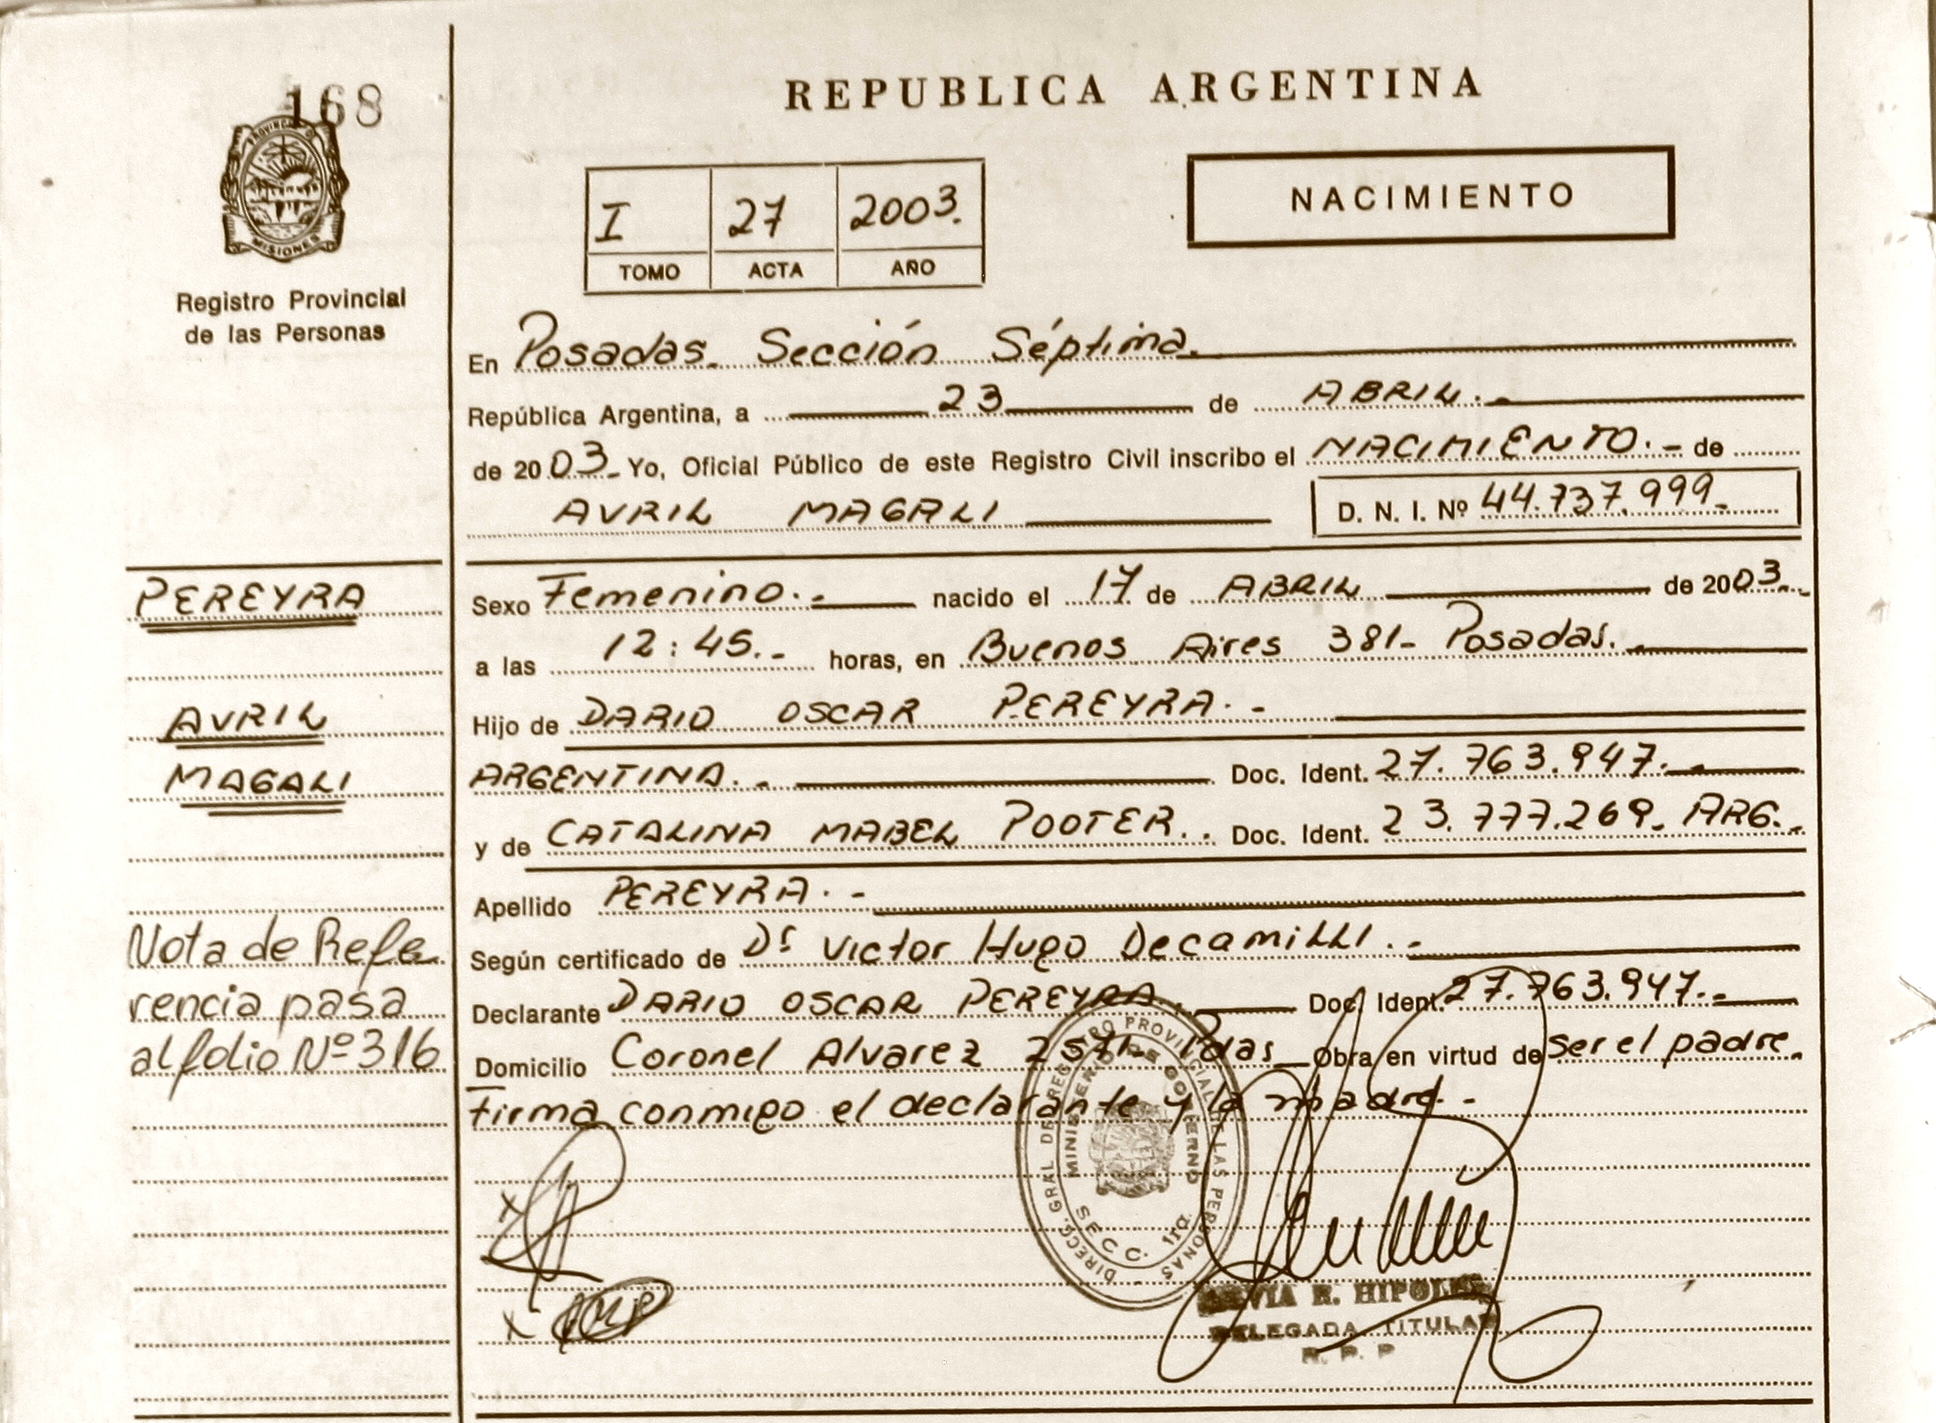 168
PROVINCIA DE
MISIONES
Registro Provincial
de las Personas
REPUBLICA ARGENTINA
I 27 2003.
TOMO ACTA AÑO
NACIMIENTO
En Posadas. Sección Séptima.
República Argentina, a 23 de ABRIL.-
de 2003.- Yo, Oficial Público de este Registro Civil inscribo el NACIMIENTO.- de
AVRIL MAGALI D. N. I. Nº 44.737.999.-
PEREYRA
AVRIL
MAGALI
Nota de Refe
rencia pasa
al folio Nº 316
Sexo Femenino.- nacido el 17 de ABRIL de 2003.-
a las 12:45.- horas, en Buenos Aires 381- Posadas.-
Hijo de DARIO OSCAR PEREYRA.-
ARGENTINA.- Doc. Ident. 27.763.947.-
y de CATALINA MABEL POOTER.. Doc. Ident. 23.777.269. ARG.-
Apellido PEREYRA.-
Según certificado de Dr Victor Hugo Decamilli.-
Declarante DARIO OSCAR PEREYRA. Doc. Ident. 27.763.947.-
Domicilio Coronel Alvarez Pdas Obra en virtud de ser el padre.
Firma conmigo el declarante y la madre.-
DIRECC. GRAL. DEL REGISTRO PROVINCIAL DE LAS PERSONAS
MINISTERIO DE GOBIERNO
SECC. 7ma.
R. HIPOLI
DELEGADA TITULAR
R. P. P